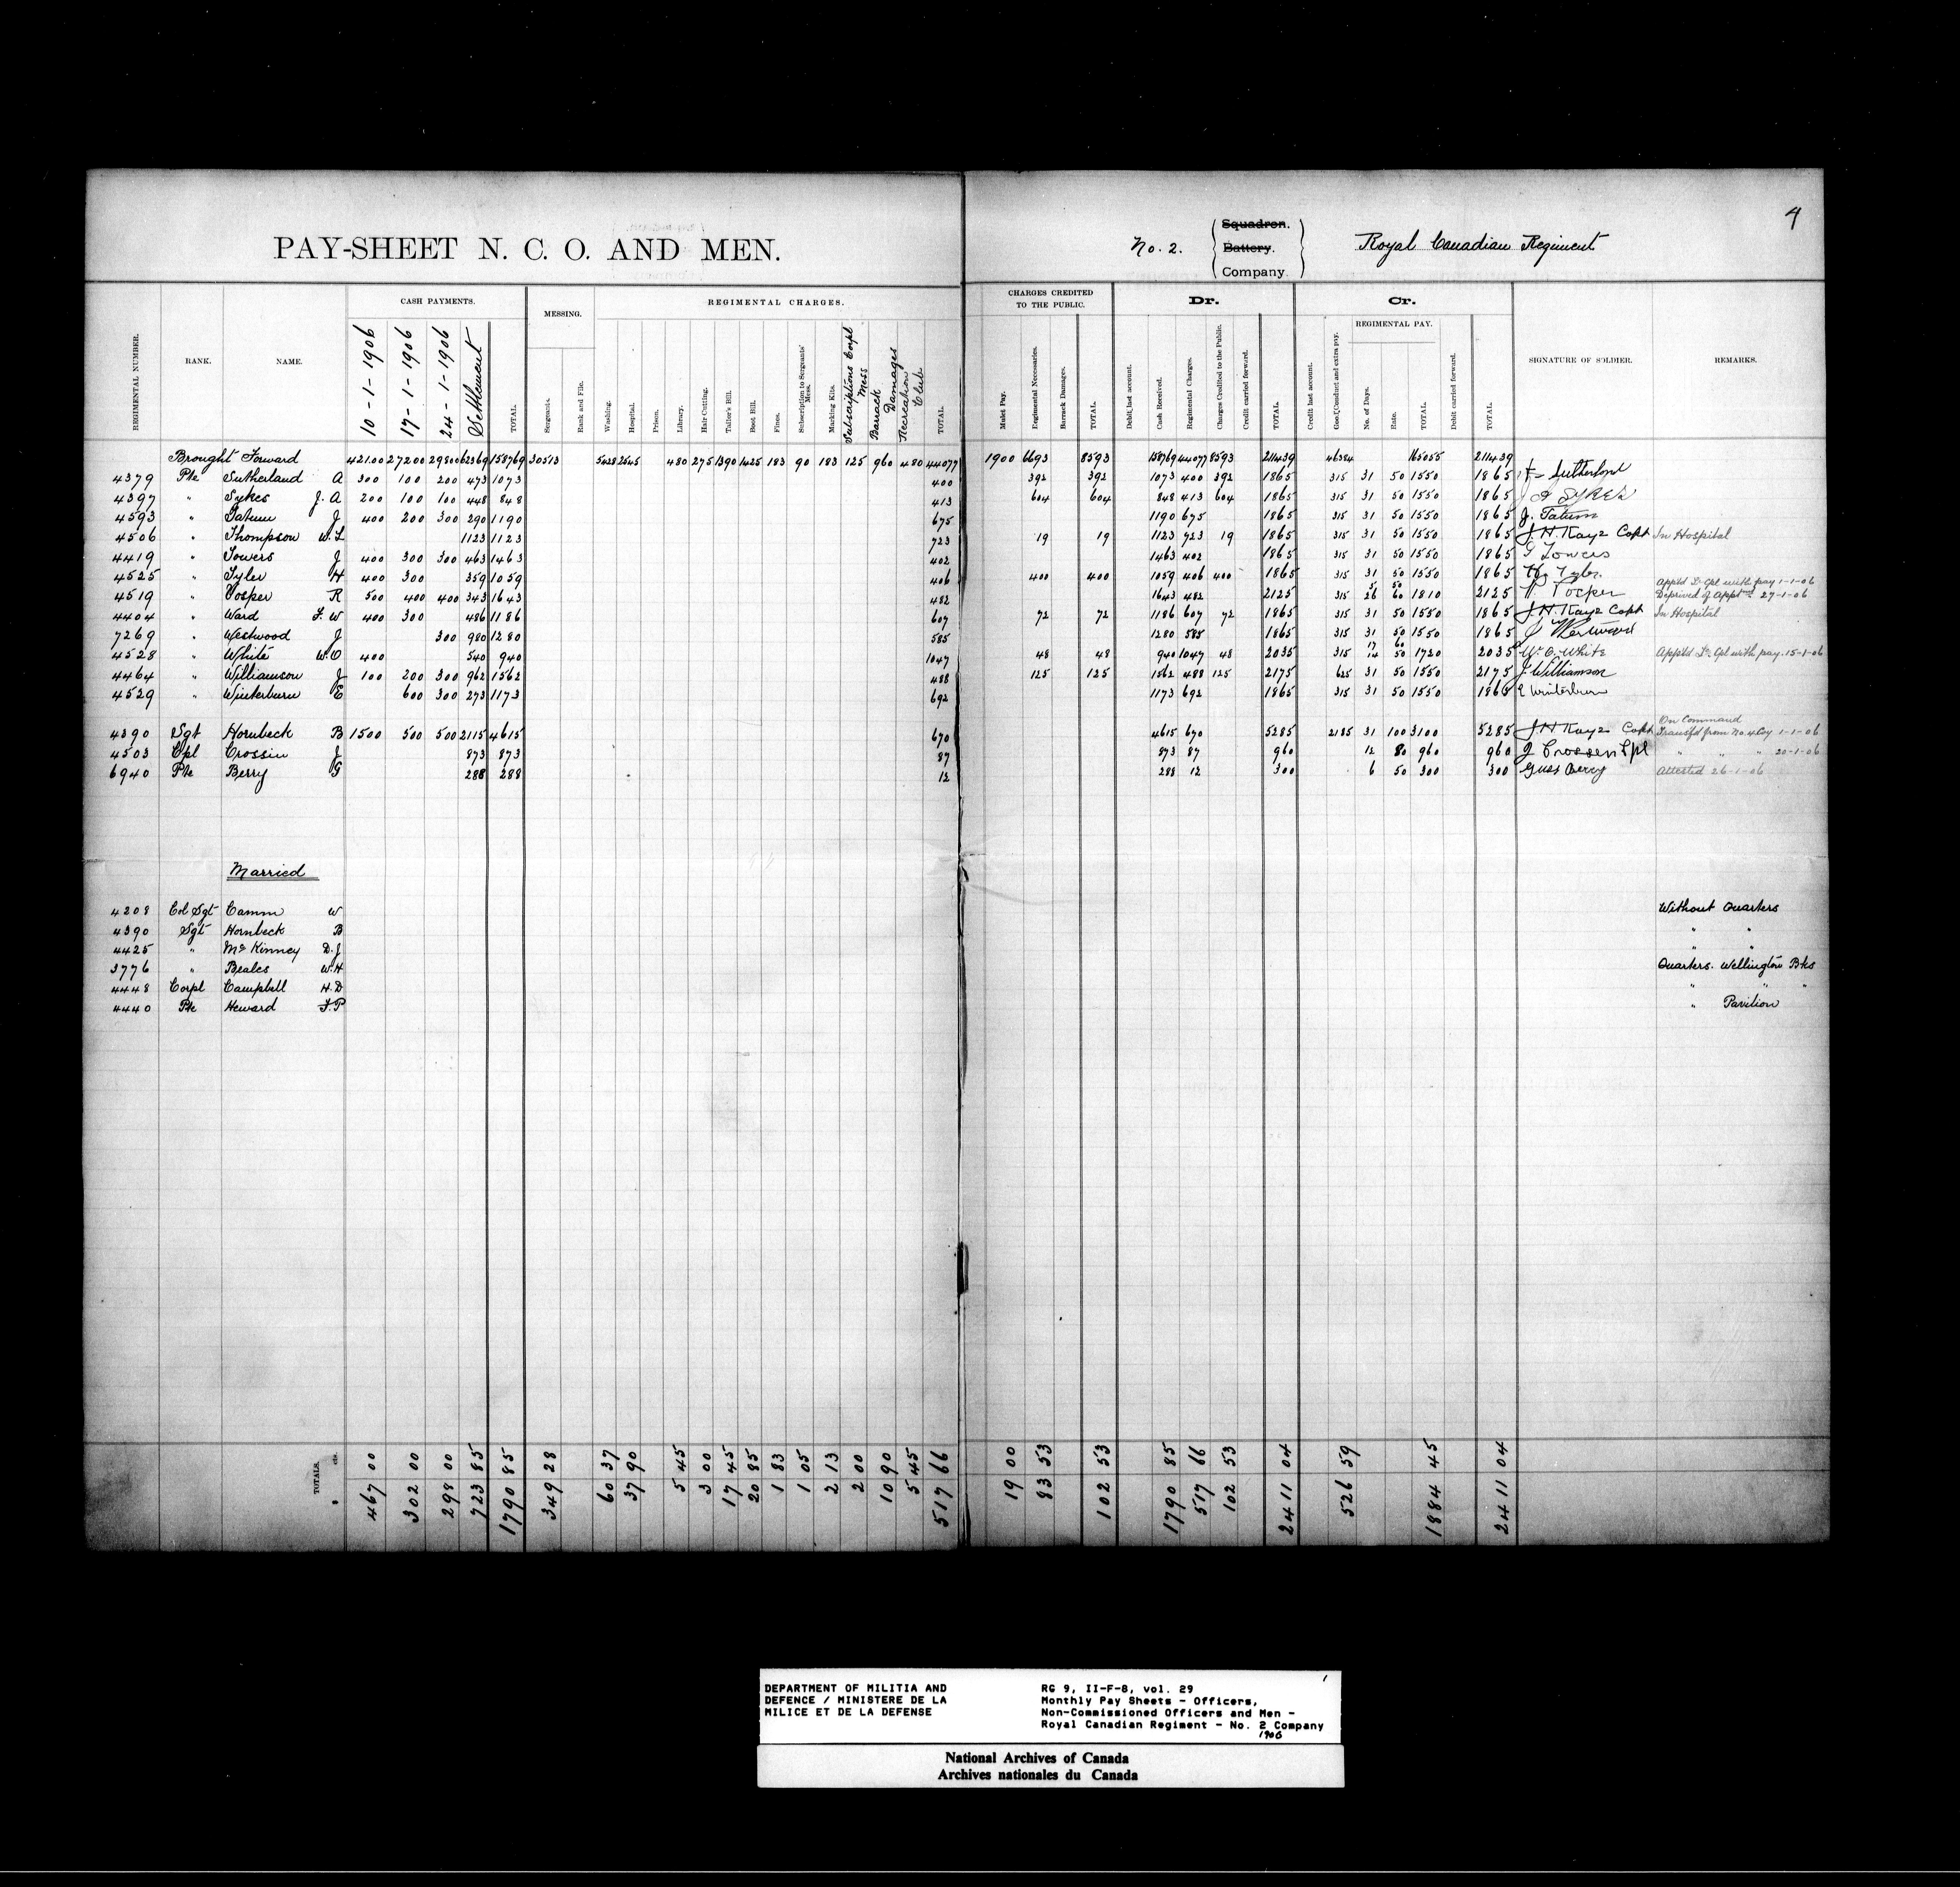 4
PAY-SHEET N. C. O. AND MEN.
No. 2. Squadron. Battery. Company Royal Canadian Regiment
REGIMENTAL NUMBER. RANK. NAME. CASH PAYMENTS. MESSING. REGIMENTAL CHARGES. CHARGES CREDITED TO THE PUBLIC. Dr. Cr. REGIMENTAL PAY. SIGNATURE OF SOLDIER. REMARKS.
10-1-1906 17-1-1906 24-1-1906 Settlement TOTAL. Sergeants. Rank and File. Washing. Hospital. Prison. Library. Hair Cutting. Tailor's Bill. Boot Bill. Fines. Subscription to Sergeants' Mess. Marking Kits. Subscriptions Corpl Mess Barrack Damages Recreation Club TOTAL.
Mulct Pay. Regimental Necessaries. Barrack Damages. TOTAL. Debit last account. Cash Received. Regimental Charges. Charges Credited to the Public. Credit carried forward. TOTAL. Credit last account. Good Conduct and extra pay. No. of Days. Rate. TOTAL. Debit carried forward. TOTAL.
Brought Forward 42100 27200 29800 62369 158769 30513 5428 2545 480 275 1390 1425 183 90 183 125 960 480 44077 1900 6693 8593 158769 44077 8593 211439 46384 165055 211439
4379 Pte Sutherland A 300 100 200 473 1073 400 392 392 1073 400 392 1865 315 31 50 1550 1865 Sutherland
4397 " Sykes J. A 200 100 100 448 848 413 604 604 848 413 604 1865 315 31 50 1550 1865 J A SYKES
4593 " Tatum J 400 200 300 290 1190 675 1190 675 1865 315 31 50 1550 1865 J. Tatum
4506 " Thompson W. L 1123 1123 723 19 19 1123 723 19 1865 315 31 50 1550 1865 J. H. Kaye Capt In Hospital
4419 " Towers J 400 300 300 463 1463 402 1463 402 1865 315 31 50 1550 1865 J Towers
4525 " Tyler H 400 300 359 1059 406 400 400 1059 406 400 1865 315 31 50 1550 1865 H. Tyler.
4519 " Vosper R 500 400 400 343 1643 482 1643 482 2125 315 5 26 50 60 1810 2125 Appt'd Lc Cpl with pay 1-1-06 Deprived of Apptmt 27-1-06
4404 " Ward F. W 400 300 486 1186 607 72 72 1186 607 72 1865 315 31 50 1550 1865 J. H. Kaye Capt In Hospital
7269 " Westwood J 300 980 1280 585 1280 585 1865 315 31 50 1550 1865 J Westwood
4528 " White W. O 400 540 940 1047 48 48 940 1047 48 2035 315 17 14 60 50 1720 2035 W. O. White Appt'd Lc Cpl with pay. 15-1-06
4464 " Williamson J 100 200 300 962 1562 488 125 125 1562 488 125 2175 625 31 50 1550 2175 J. Williamson
4529 " Winterburn E 600 300 273 1173 692 1173 692 1865 315 31 50 1550 1865 E Winterburn
4390 Sgt Hornbeck B 1500 500 500 2115 4615 670 4615 670 5285 2185 31 100 3100 5285 J. H. Kaye Capt On Command Transf'd from No. 4 Coy 1-1-06
4503 Cpl Crossin J 873 873 87 873 87 960 12 80 960 960 J Crossen Cpl " " " 20-1-06
6940 Pte Berry G 288 288 12 288 12 300 6 50 300 300 Guss Berry Attested 26-1-06
Married
4208 Col Sgt Camm W Without Quarters
4390 Sgt Hornbeck B " "
4425 " McKinney D. J " "
3776 " Beales W. H Quarters. Wellington Bks
4448 Corpl Campbell H. D " " "
4440 Pte Heward F. P " Pavilion
TOTALS. $ cts. 467 00 302 00 298 00 723 85 1790 85 349 28 60 37 37 90 5 45 3 00 17 45 20 85 1 83 1 05 2 13 2 00 10 90 5 45 517 66 19 00 83 53 102 53 1790 85 517 66 102 53 2411 04 526 59 1884 45 2411 04
DEPARTMENT OF MILITIA AND
DEFENCE / MINISTERE DE LA
MILICE ET DE LA DEFENSE
RG 9, II-F-8, vol. 29
Monthly Pay Sheets - Officers,
Non-Commissioned Officers and Men -
Royal Canadian Regiment - No. 2 Company
1906
National Archives of Canada
Archives nationales du Canada